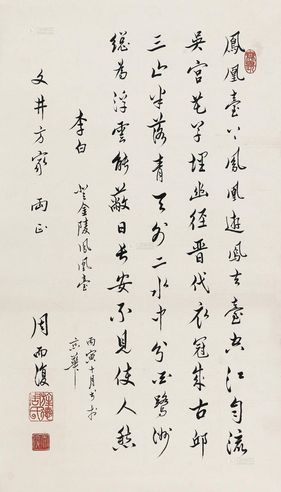 鳳凰臺上鳳凰遊鳳去臺空江自流
吳宮花草埋幽徑晉代衣冠成古邱
三山半落青天外二水中分白鷺洲
總為浮雲能蔽日長安不見使人愁
李白 登金陵鳳凰臺
丙寅十月書於
京華
文井方家 正
周而復